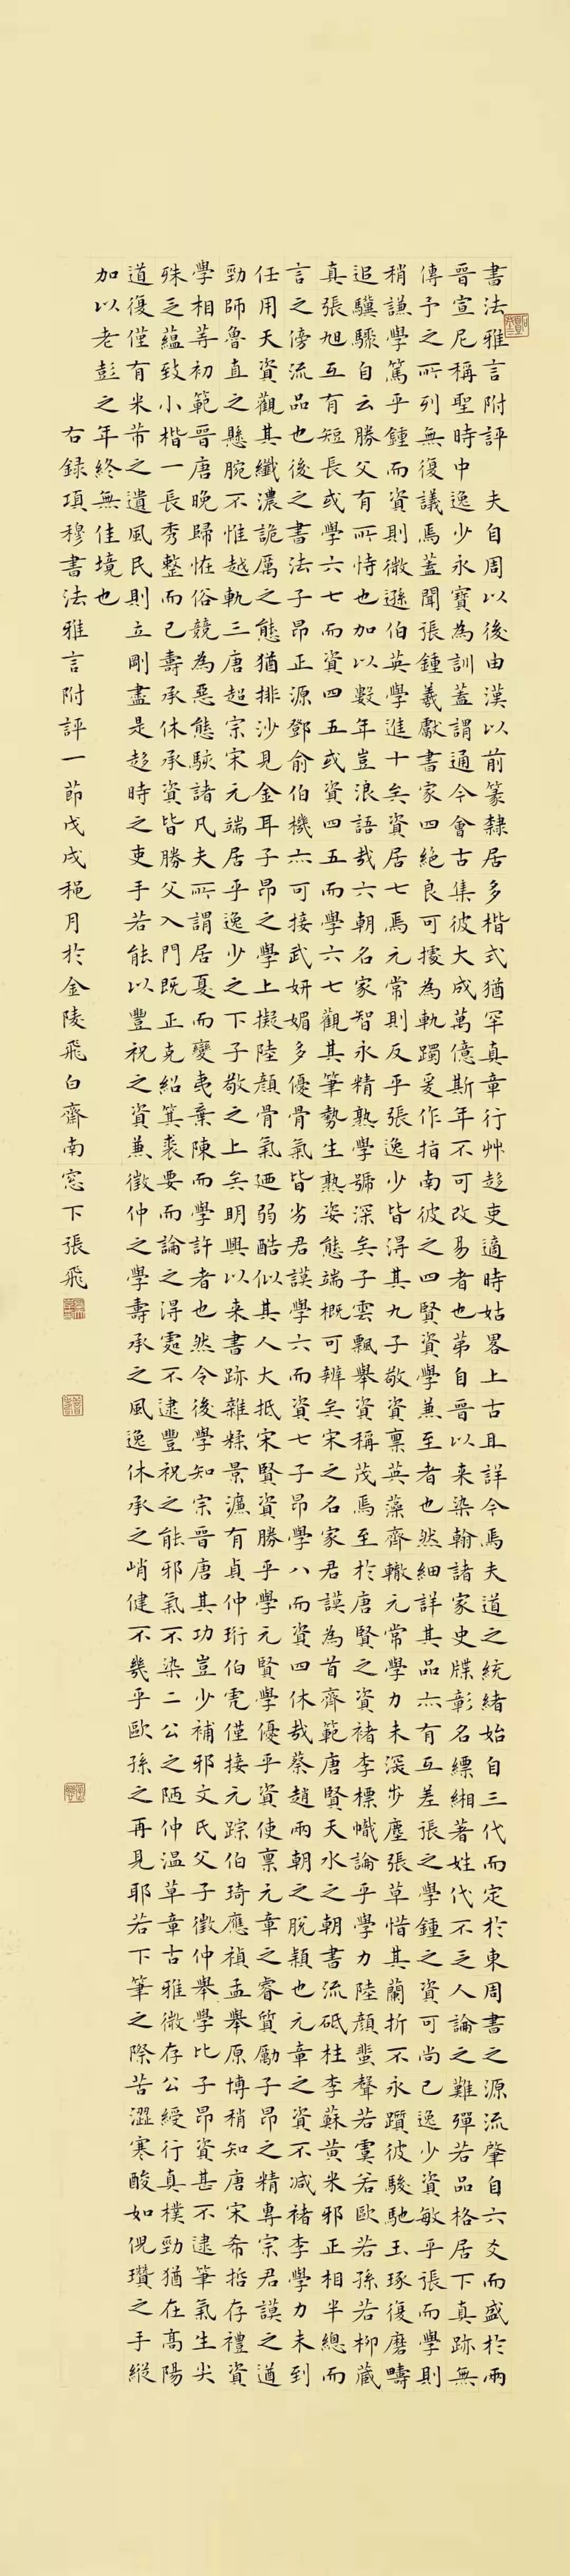 書法雅言附評　夫自周以後由漢以前篆隸居多楷式猶罕真章行艸趍吏適時姑畧上古且詳今焉夫道之統緒始自三代而定於東周書之源流肇自六爻而盛於兩
晉宣尼稱聖時中逸少永寶為訓蓋謂通今會古集彼大成萬億斯年不可改易者也苐自晉以来染翰諸家史牒彰名縹緗著姓代不乏人論之難彈若品格居下真跡無
傳予之所列無復議焉蓋聞張鍾羲獻書家四絕良可據為軌躅爰作指南彼之四賢資學兼至者也然細詳其品亦有互差張之學鍾之資可尚已逸少資敏乎張而學則
稍謙學篤乎鍾而資則微遜伯英學進十矣資居七焉元常則反乎張逸少皆得其九子敬資稟英藻齊轍元常學力未深步塵張草惜其蘭折不永躓彼駿馳玉琢復磨疇
追驥騄自云勝父有所恃也加以數年豈浪語哉六朝名家智永精熟學號深矣子雲飄舉資稱茂焉至於唐賢之資褚李標幟論乎學力陸顏蜚聲若虞若歐若孫若柳藏
真張旭互有短長或學六七而資四五或資四五而學六七觀其筆勢生熟姿態端概可辨矣宋之名家君謨為首齊範唐賢天水之朝書流砥柱李蘇黃米邪正相半總而
言之傍流品也後之書法子昂正源鄧俞伯機亦可接武妍媚多優骨氣皆劣君謨學六而資七子昂學八而資四休哉蔡趙兩朝之脫穎也元章之資不減褚李學力未到
任用天資觀其纖濃詭厲之態猶排沙見金耳子昂之學上擬陸顏骨氣迺弱酷似其人大抵宋賢資勝乎學元賢學優乎資使稟元章之睿質勵子昂之精專宗君謨之遒
勁師魯直之懸腕不惟越軌三唐超宗宋元端居乎逸少之下子敬之上矣明興以来書跡雜糅景濂有貞仲珩伯虎僅接元踪伯琦應禎孟舉原博稍知唐宋希哲存禮資
學相等初範晉唐晚歸恠俗競為惡態駭諸凡夫所謂居夏而變夷棄陳而學許者也然令後學知宗晉唐其功豈少補邪文氏父子徵仲舉學比子昂資甚不逮筆氣生尖
殊乏蘊致小楷一長秀整而已壽承休承資皆勝父入門既正克紹箕裘要而論之得處不逮豐祝之能邪氣不染二公之陋仲溫草章古雅微存公綬行真樸勁猶在高陽
道復僅有米芾之遺風民則立剛盡是趍時之吏手若能以豐祝之資兼徵仲之學壽承之風逸休承之峭健不幾乎歐孫之再見耶若下筆之際苦澀寒酸如倪瓚之手縱
加以老彭之年終無佳境也
右錄項穆書法雅言附評一節戊戌穐月於金陵飛白齋南窓下張飛